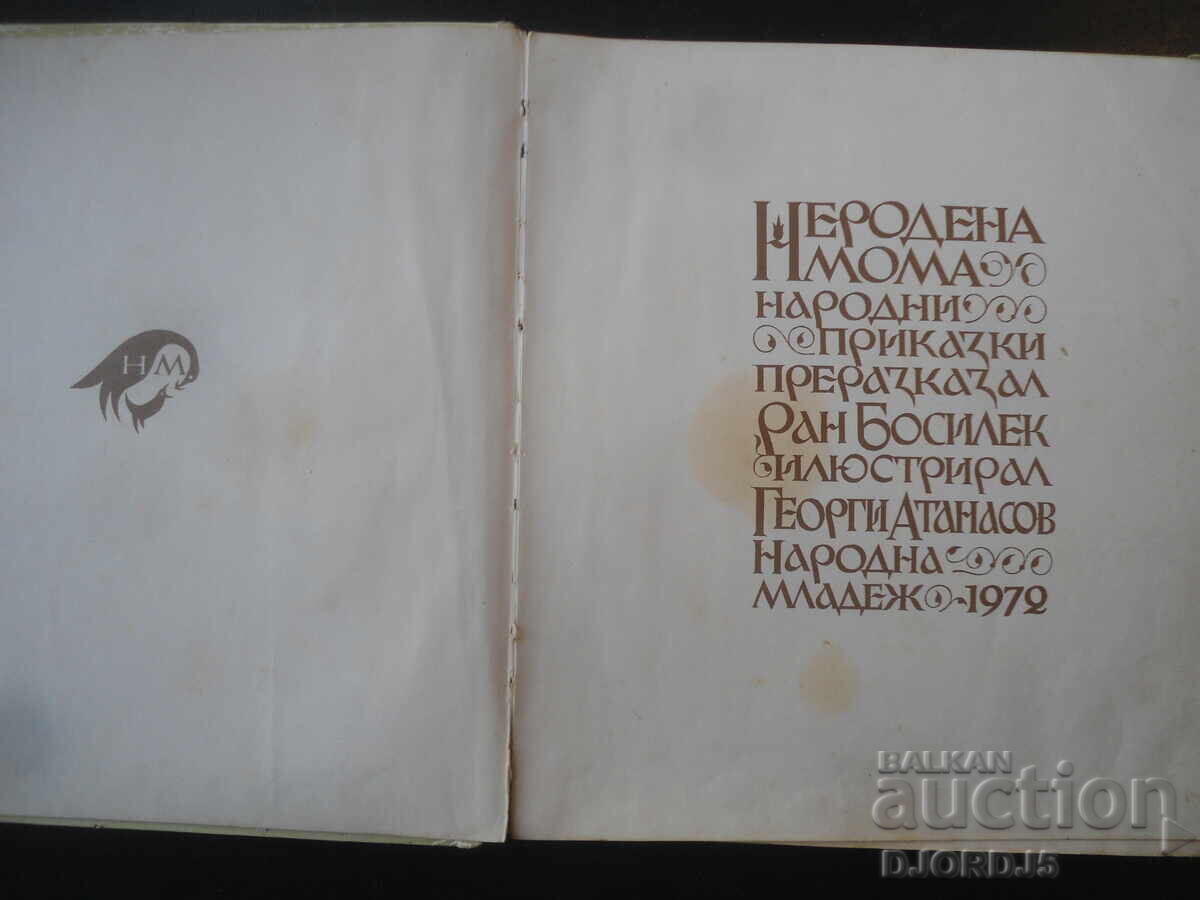 НМ
НЕРОДЕНА
МОМА
НАРОДНИ
ПРИКАЗКИ
ПРЕРАЗКАЗАЛ
РАН БОСИЛЕК
ИЛЮСТРИРАЛ
ГЕОРГИ АТАНАСОВ
НАРОДНА
МЛАДЕЖ 1972
BALKAN
auction
DJORDJ5